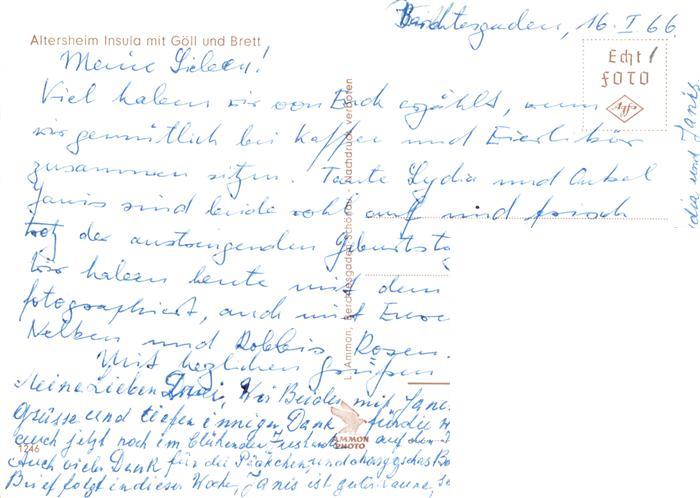 Berchtesgaden, 16. I 66
Altersheim Insula mit Göll und Brett
Echt
FOTO
Meine Lieben!
Viel haben wir von Euch erzählt, wenn
wir gemütlich bei Kaffee und Eierlikör
zusammen sitzen. Tante Lydia und Onkel
Janis sind beide wohl auf und frisch
trotz der anstrengenden Geburtstag
Wir haben heute mit dem
fotographiert, auch mit Euren
Nelken und Robbis Rosen.
Mit herzlichen Grüßen
Meine Lieben Drei, Wir Beiden mit Janis
Grüsse und tiefen innigen Dank für die
auch jetzt noch im blühenden Zustande auf dem
Auch vielen Dank für die Päckchen und
Brief folgt in dieser Woche, Janis ist guter Laune,
L. Ammon, Berchtesgaden-Schönau Nachdruck verboten
AMMON
PHOTO
1246
und Janis